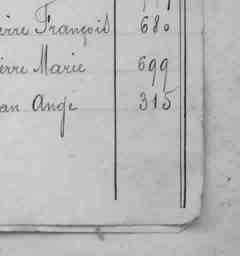 erre François 680
erre Marie 699
an Ange 315